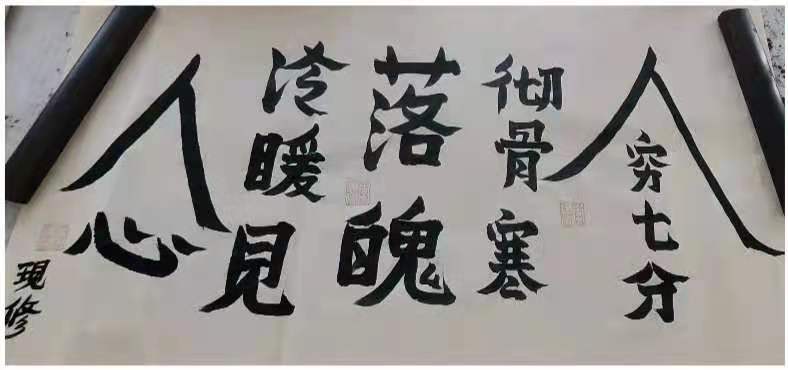 人穷七分
彻骨寒
落魄
冷暖见
人心
現修